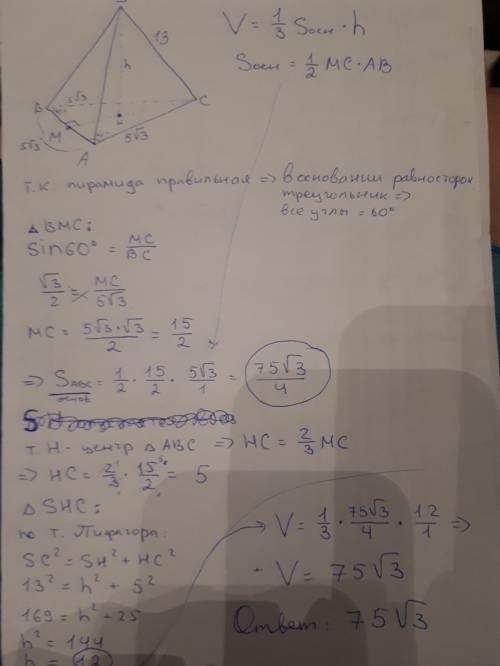 V = 1/3 Sосн · h
Sосн = 1/2 MC · AB
13
h
B
5√3
C
M
H
5√3
A
5√3
т.к. пирамида правильная => в основании равносторон
треугольник =>
все углы = 60°
△BMC:
sin60° = MC/BC
√3/2 = MC/5√3
MC = 5√3·√3/2 = 15/2
=> SABC = 1/2 · 15/2 · 5√3/1 = 75√3/4
основ
т. H - центр △ABC => HC = 2/3 MC
=> HC = 2/3 · 15/2 = 5
△SHC:
по т. Пифагора:
SC² = SH² + HC²
13² = h² + 5²
169 = h² + 25
h² = 144
h = 12
V = 1/3 · 75√3/4 · 12/1 =>
V = 75√3
Ответ: 75√3